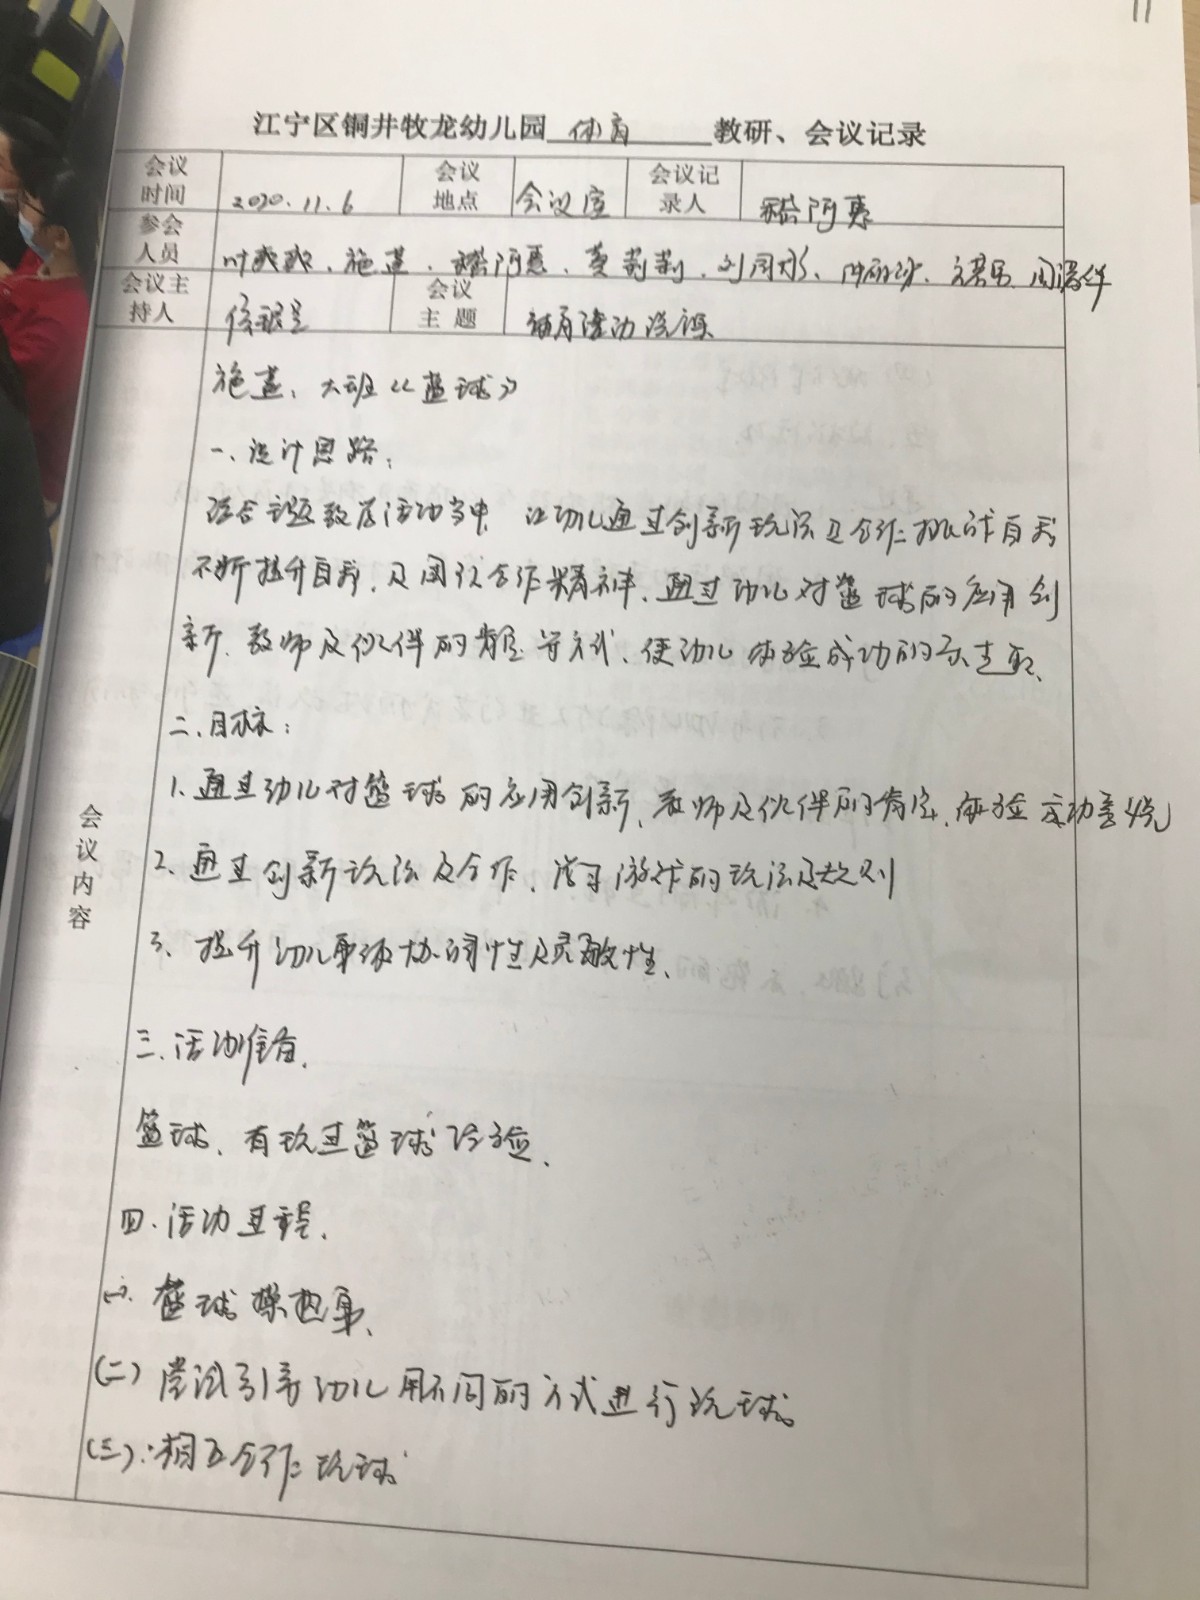 11
江宁区铜井牧龙幼儿园 体育 教研、会议记录
会议时间 2020.11.6 会议地点 会议室 会议记录人 阿惠
参会人员 叶爽爽、施蓝、阿惠、莉莉、刘周
会议主持人 会议主题 体育活动说课
施蓝:大班《篮球》
一、设计思路:
结合主题教学活动当中,让幼儿通过创新玩法及合作挑战自我
不断提升自我,及团队合作精神,通过幼儿对篮球的应用创
新、教师及伙伴的肯定等方式、使幼儿体验成功的乐趣。
二、目标:
1.通过幼儿对篮球的应用创新、教师及伙伴的肯定,体验成功喜悦
2.通过创新玩法及合作,学习游戏的玩法及规则
3、提升幼儿身体协调性及灵敏性。
三、活动准备。
篮球、有玩过篮球经验、
四、活动过程、
(一)、篮球操热身、
(二)尝试引导幼儿用不同的方式进行玩球。
(三):相互合作玩球
会议内容